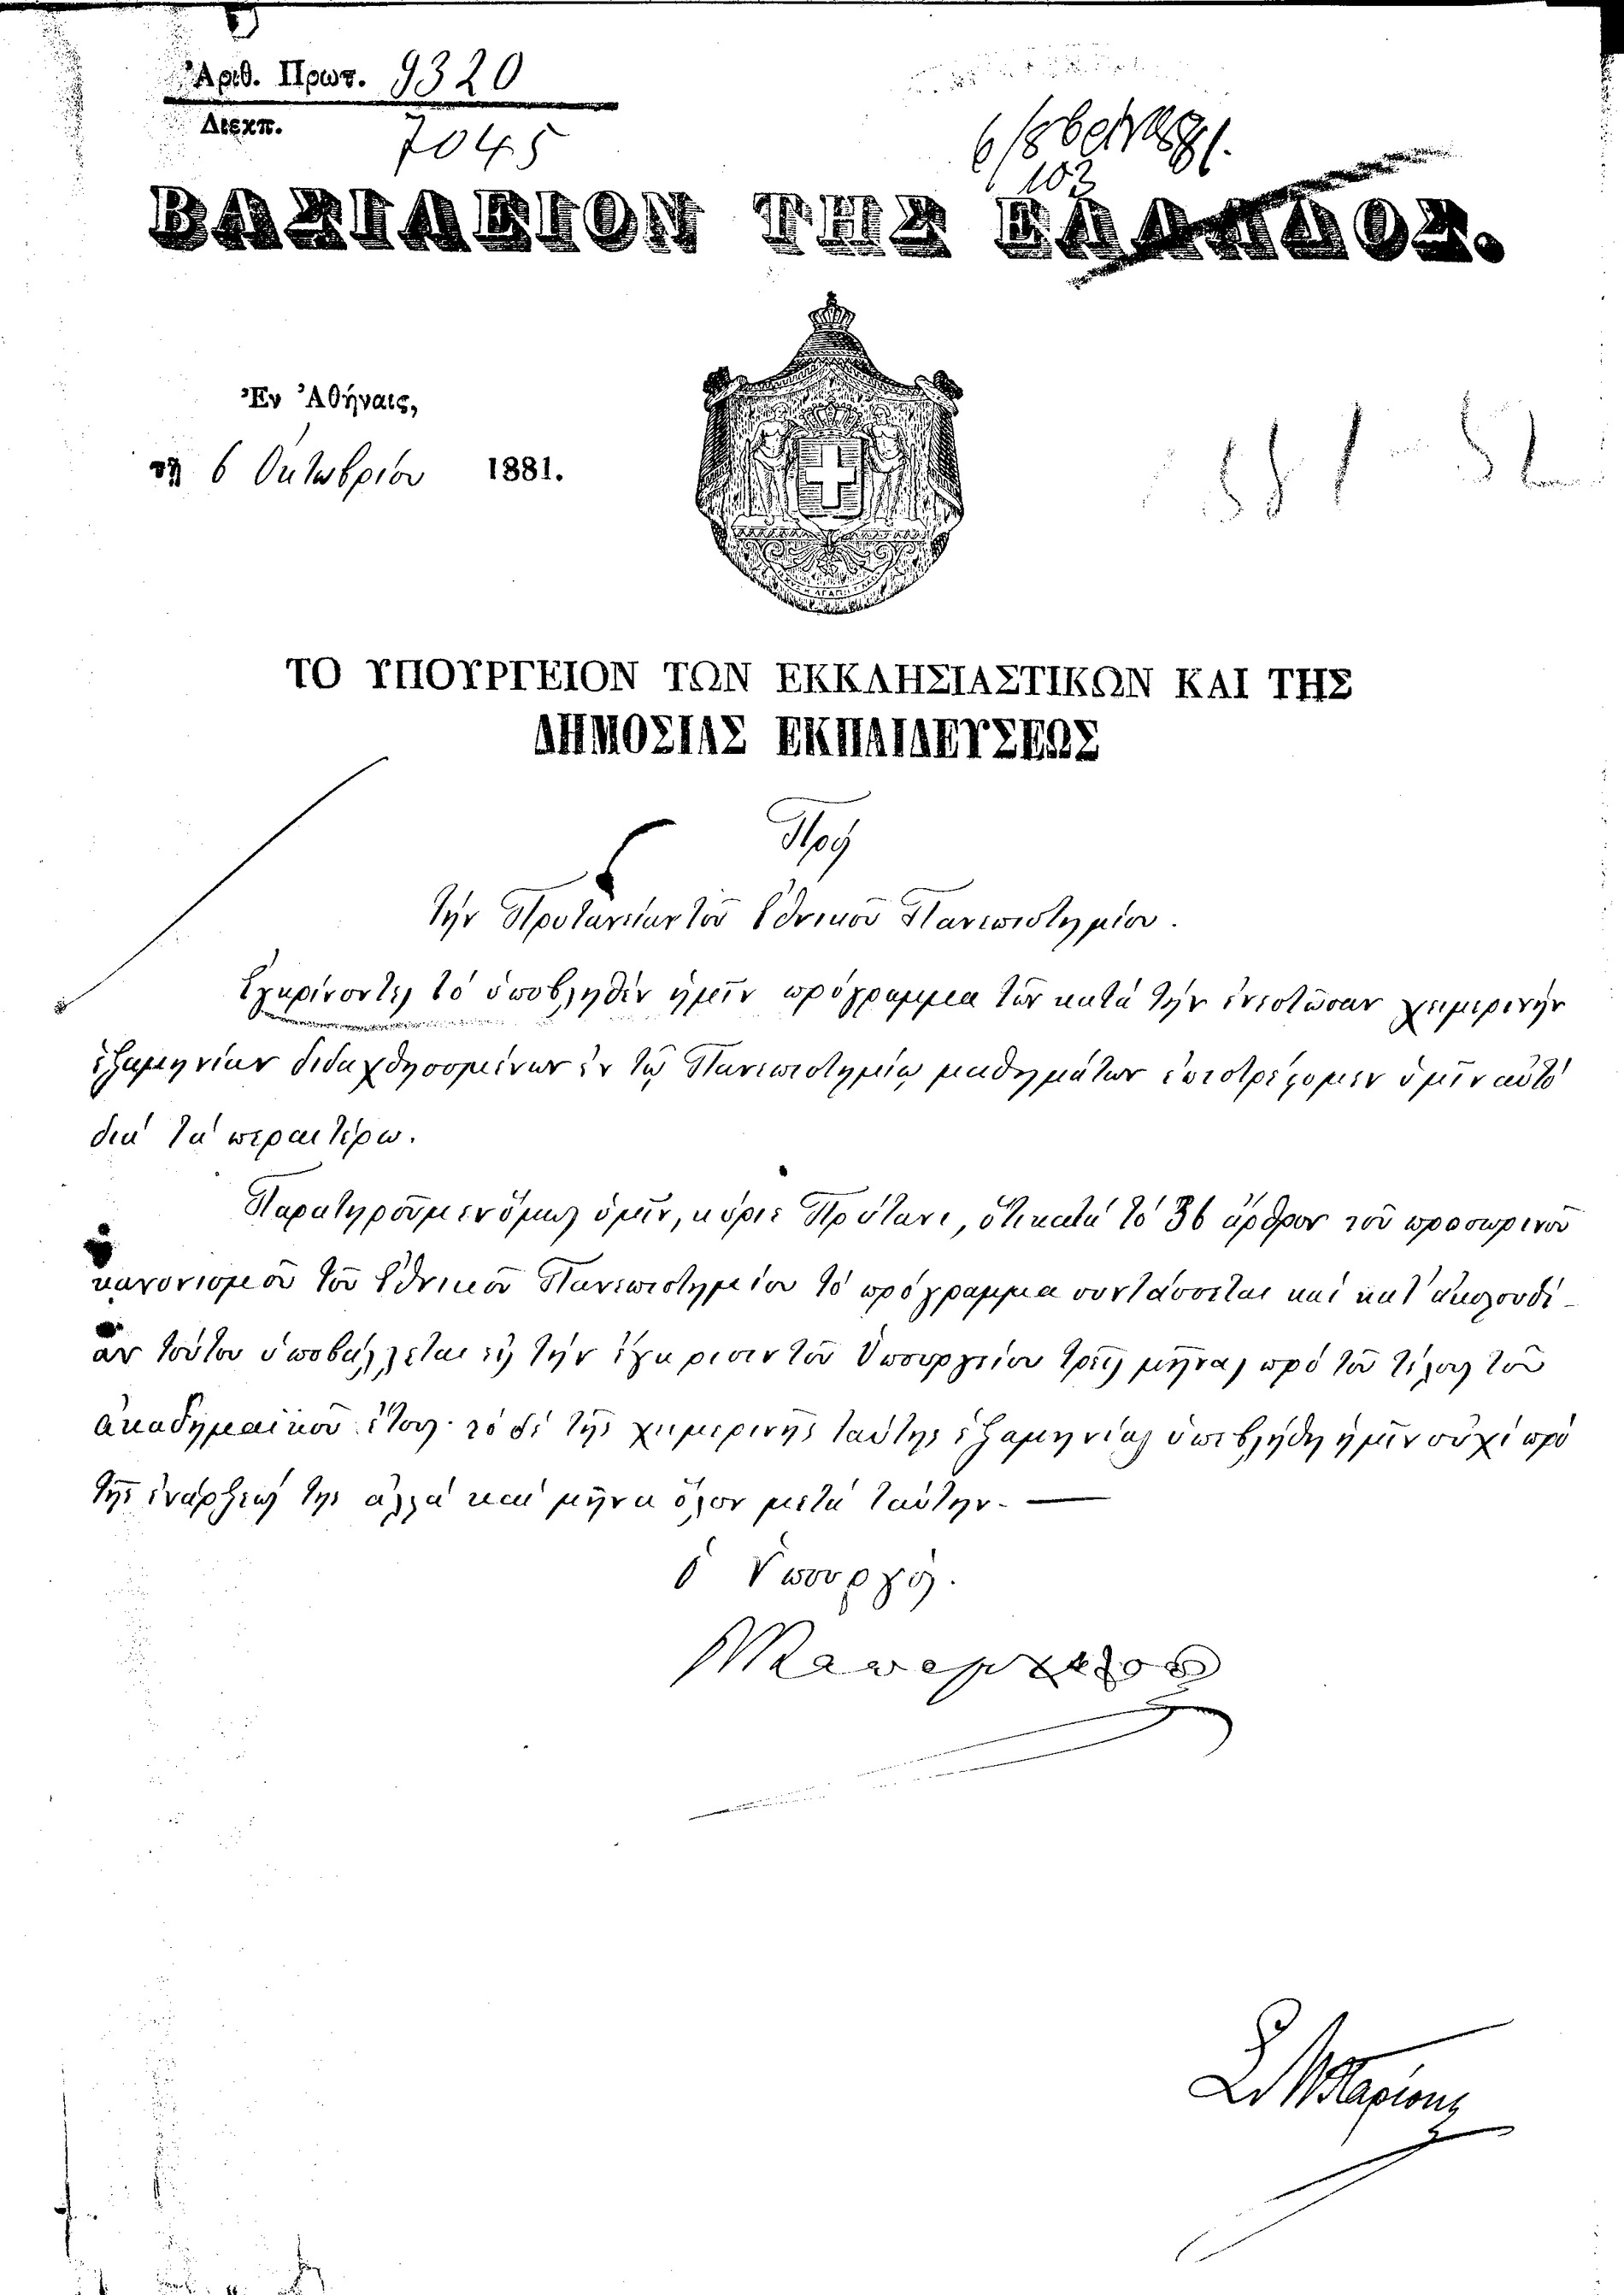 Ἀριθ. Πρωτ. 9320
Διεκπ. 7045
103
ΒΑΣΙΛΕΙΟΝ ΤΗΣ ΕΛΛΑΔΟΣ.
Ἐν Ἀθήναις,
τῇ 6 Ὀκτωβρίου 1881.
ΤΟ ΥΠΟΥΡΓΕΙΟΝ ΤΩΝ ΕΚΚΛΗΣΙΑΣΤΙΚΩΝ ΚΑΙ ΤΗΣ
ΔΗΜΟΣΙΑΣ ΕΚΠΑΙΔΕΥΣΕΩΣ
Πρὸς
τὴν Πρυτανείαν τοῦ Ἐθνικοῦ Πανεπιστημίου.
Ἐγκρίνοντες τὸ ὑποβληθὲν ἡμῖν πρόγραμμα τῶν κατὰ τὴν ἐνεστῶσαν χειμερινὴν
ἑξαμηνίαν διδαχθησομένων ἐν τῷ Πανεπιστημίῳ μαθημάτων ἐπιστρέφομεν ὑμῖν αὐτὸ
διὰ τὰ περαιτέρω.
Παρατηροῦμεν ὅμως ὑμῖν, κύριε Πρύτανι, ὅτι κατὰ τὸ 36 ἄρθρον τοῦ προσωρινοῦ
κανονισμοῦ τοῦ Ἐθνικοῦ Πανεπιστημίου τὸ πρόγραμμα συντάσσεται καὶ κατ' ἀκολουθί-
αν τούτου ὑποβάλλεται εἰς τὴν ἔγκρισιν τοῦ Ὑπουργείου τρεῖς μῆνας πρὸ τοῦ τέλους τοῦ
ἀκαδημαϊκοῦ ἔτους· τὸ δὲ τῆς χειμερινῆς ταύτης ἑξαμηνίας ὑπεβλήθη ἡμῖν οὐχὶ πρὸ
τῆς ἐνάρξεώς της ἀλλὰ καὶ μῆνα ὅλον μετὰ ταύτην.
Ὁ Ὑπουργός.